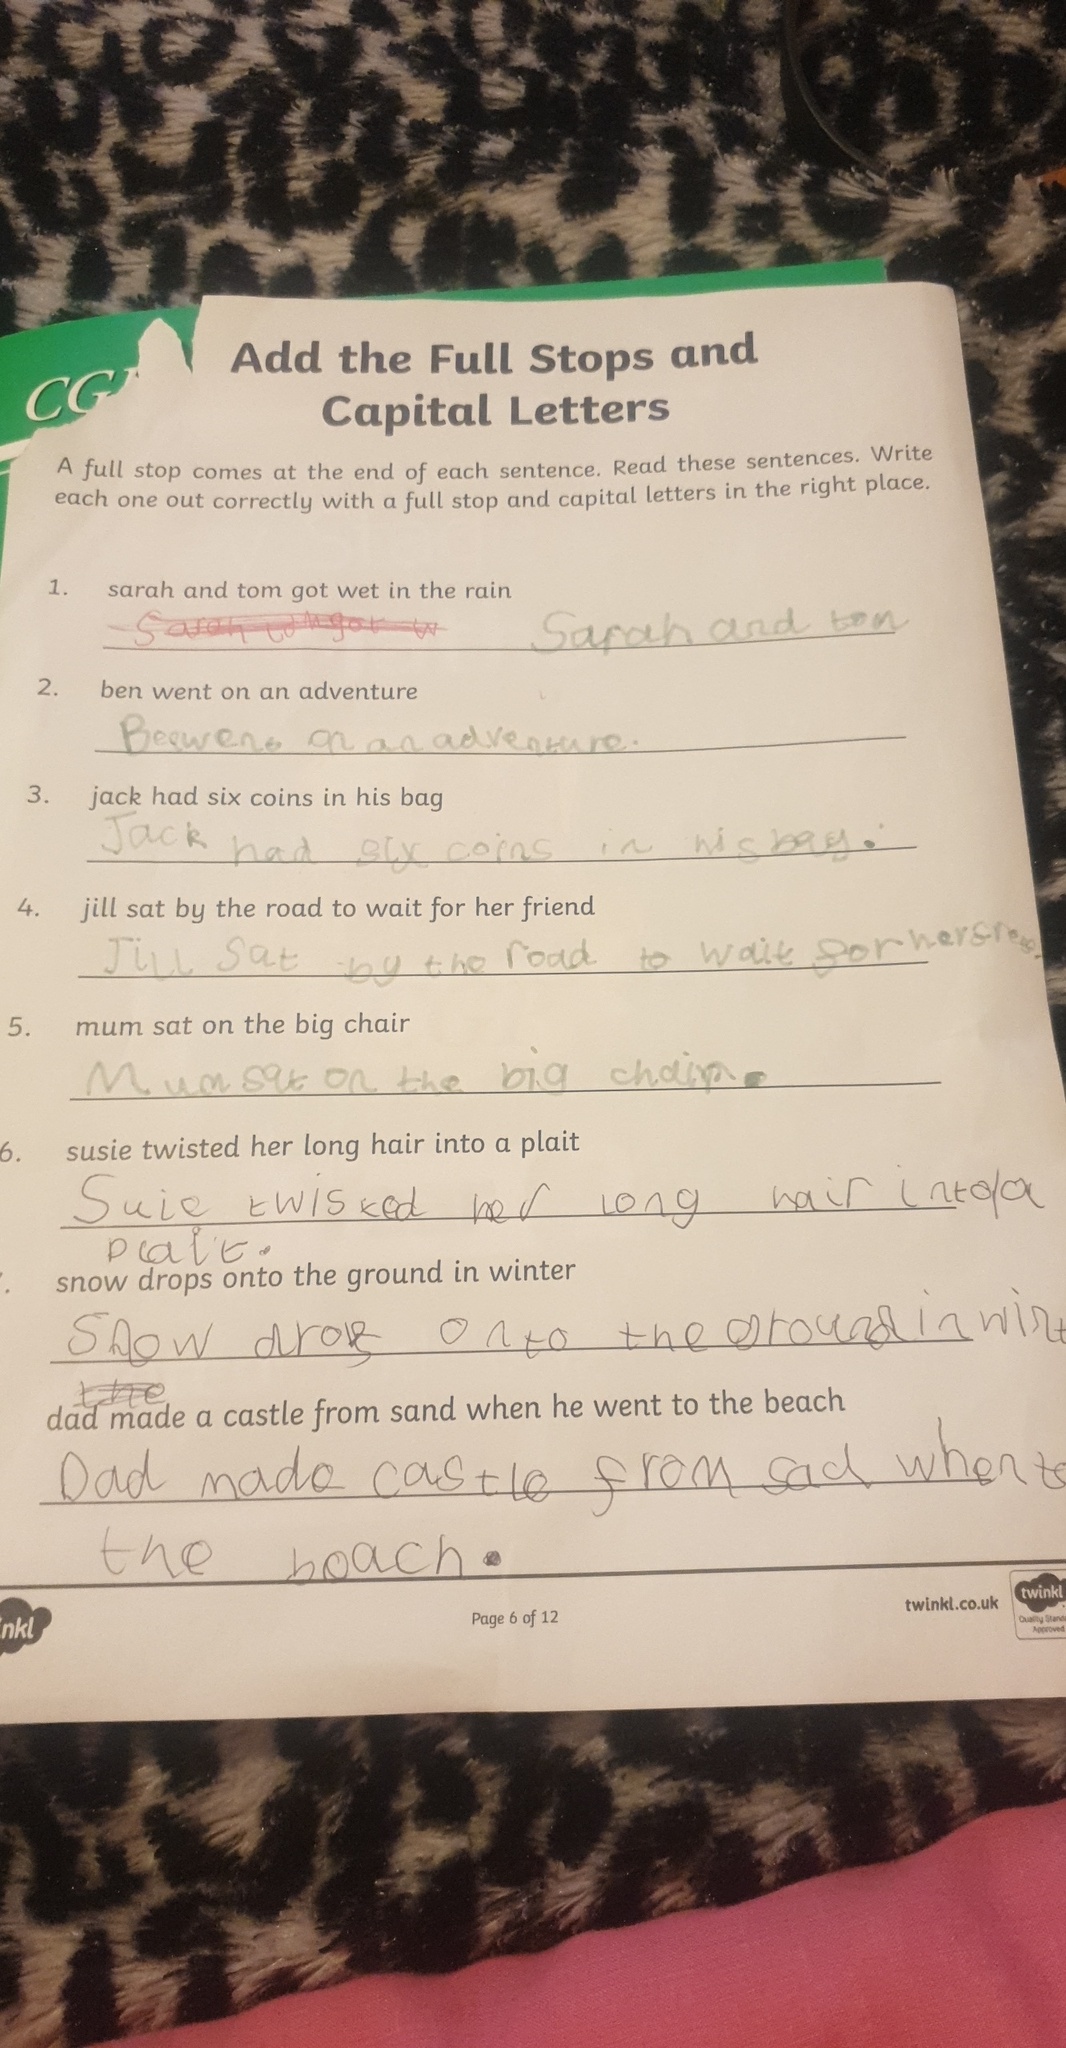 CGP
Add the Full Stops and
Capital Letters
A full stop comes at the end of each sentence. Read these sentences. Write
each one out correctly with a full stop and capital letters in the right place.
1. sarah and tom got wet in the rain
Sarah and tom
2. ben went on an adventure
on an adventure.
3. jack had six coins in his bag
Jack had six coins in his bag.
4. jill sat by the road to wait for her friend
Jill sat by the road to wait for her
5. mum sat on the big chair
Mum sat on the big chair.
6. susie twisted her long hair into a plait
Suie twisted her long hair into a
plait.
. snow drops onto the ground in winter
Snow onto the ground in wint
the
dad made a castle from sand when he went to the beach
Dad made castle from sad when to
the beach.
nkl
Page 6 of 12
twinkl.co.uk
twinkl
Quality Stand
Approved